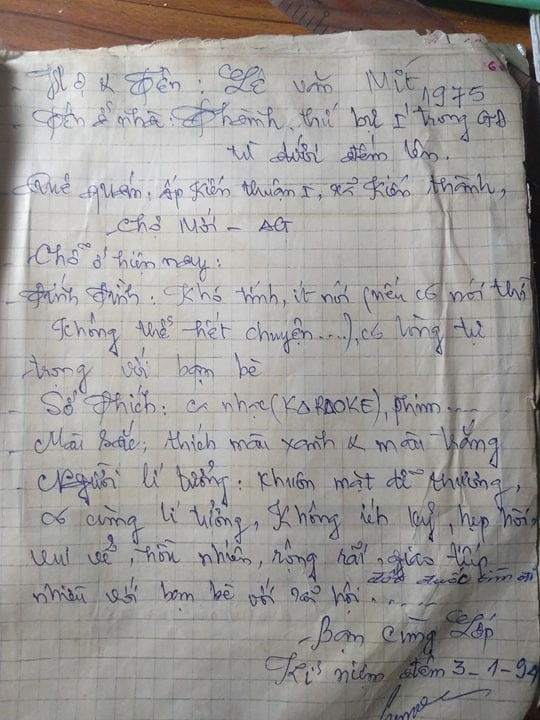 - Họ & Tên: Lê văn Mít 1975
- Tên ở nhà: Thành. thứ bự I trong GĐ
từ dưới đếm lên.
- Quê quán: ấp Kiến thuận I, xã Kiến thành,
Chợ Mới - AG
- Chỗ ở hiện nay:
- Tính tình: Khó tính, ít nói (nếu có nói thì
không thể hết chuyện....), có lòng tự
trọng với bạn bè
- Sở thích: ca nhạc (KARAOKE), phim ....
- Màu sắc: thích màu xanh & màu trắng
- Người lí tưởng: khuôn mặt dễ thương,
có cùng lí tưởng, không ích kỷ, hẹp hòi
vui vẻ, hồn nhiên, rộng rãi, giao tiếp
nhiều với bạn bè với xã hội ......
- Bạn cùng Lớp
Kỉ niệm đêm 3-1-94